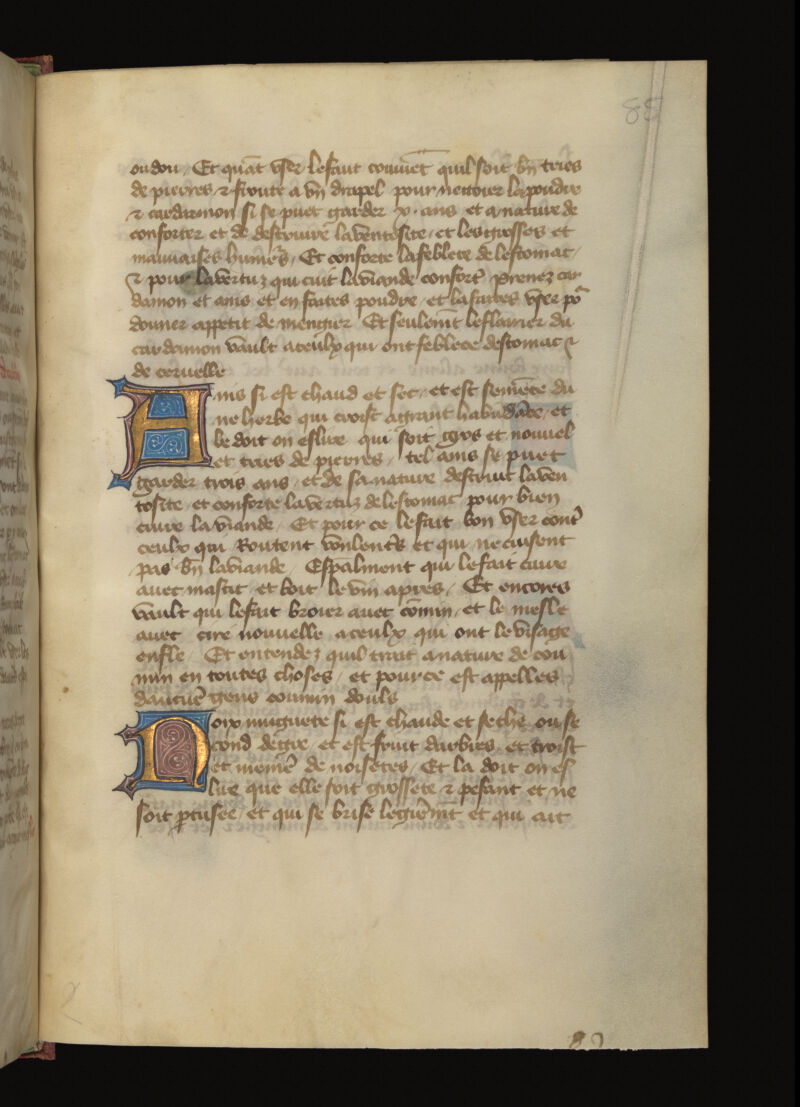 oudou / Et quāt vser le faut couuiēt quil soit bn̄ tries
de pierres / ⁊ froute a vn̄ drapel pour nettoier la poudre
⁊ cardamon si se puet garder x · ans et a nature de
conforter et de destruire la ventosite / et les grosses et
mauuaises humeˀs / Et conforte la feblece de lestomac /
⁊ pour la vertuz qui cuit la viande confort̉ prenez car
damon et anis et en faites poudre / et la faites vser po᷑
donner appetit de mengier Et seulemēt le flairier du
cardamon vault a ceulx qui ont feblece destomac ⁊
de ceruelle
Anis si est chaud et sec / et est semēce du
ne herbe qui croist a grant habūdāce / et
le doit on eslire qui soit gros et nouuel
et tries de pierres / tel anis se puet
garder trois ans / et de sa nature destruit la ven
tosite / et conforte la vertuz de lestomac pour bien
cuire la viande / Et pour ce le fait bon vser cont̉
ceulx qui Routent vōulent̉s et qui ne cuisent
pas bn̄ la viande / Esp̄alment qui le fait cuire
auec mastic / et boit le vin apres / Et encores
vault qui le fait broier auec cōmin / et le mesle
auec cire nouuelle a ceulx qui ont le visage
enfle Et entendez quil trait a nature de cou
min en toutes choses / et pour ce est appelles
daucuēˀ gens coumin douls
Noix muguete si est chaude et seche ou se
cond degre / et est fruit darbres / et croist
et memēˀ de noisetes / Et la doit on es
lire que elle soit grossete ⁊ pesant et ne
soit ꝑtusee / et qui se brise legierem̄t et qui ait